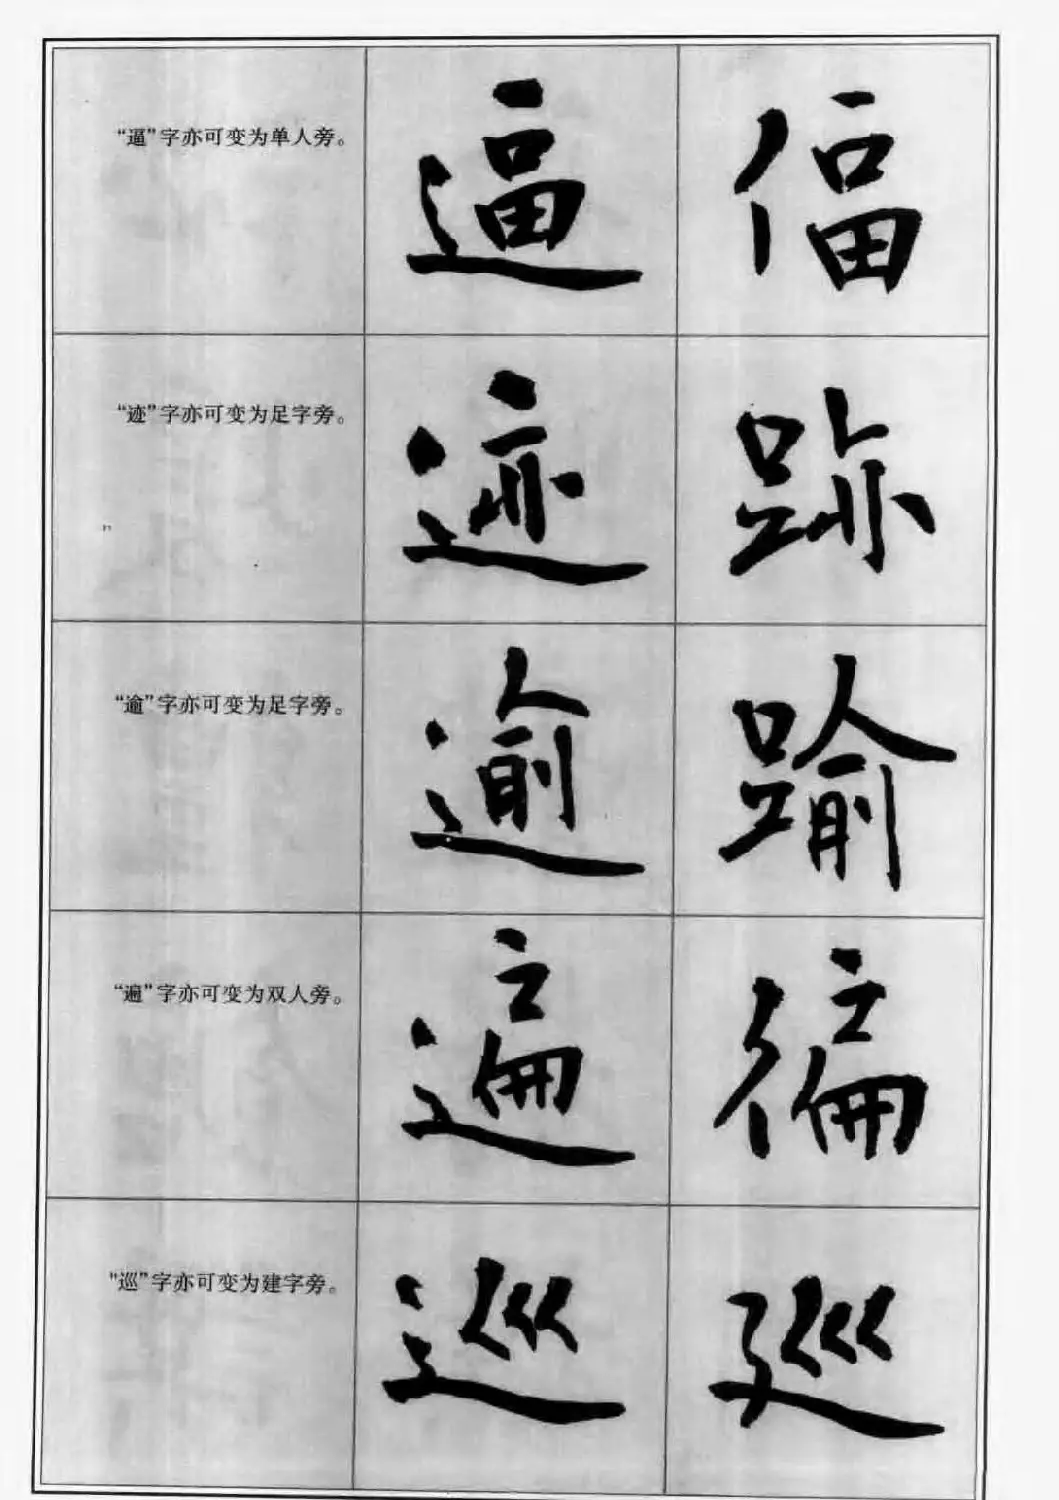 “逼”字亦可变为单人旁。 逼 偪
“迹”字亦可变为足字旁。 迹 跡
“逾”字亦可变为足字旁。 逾 踰
“遍”字亦可变为双人旁。 遍 徧
“巡”字亦可变为建字旁。 巡 廵